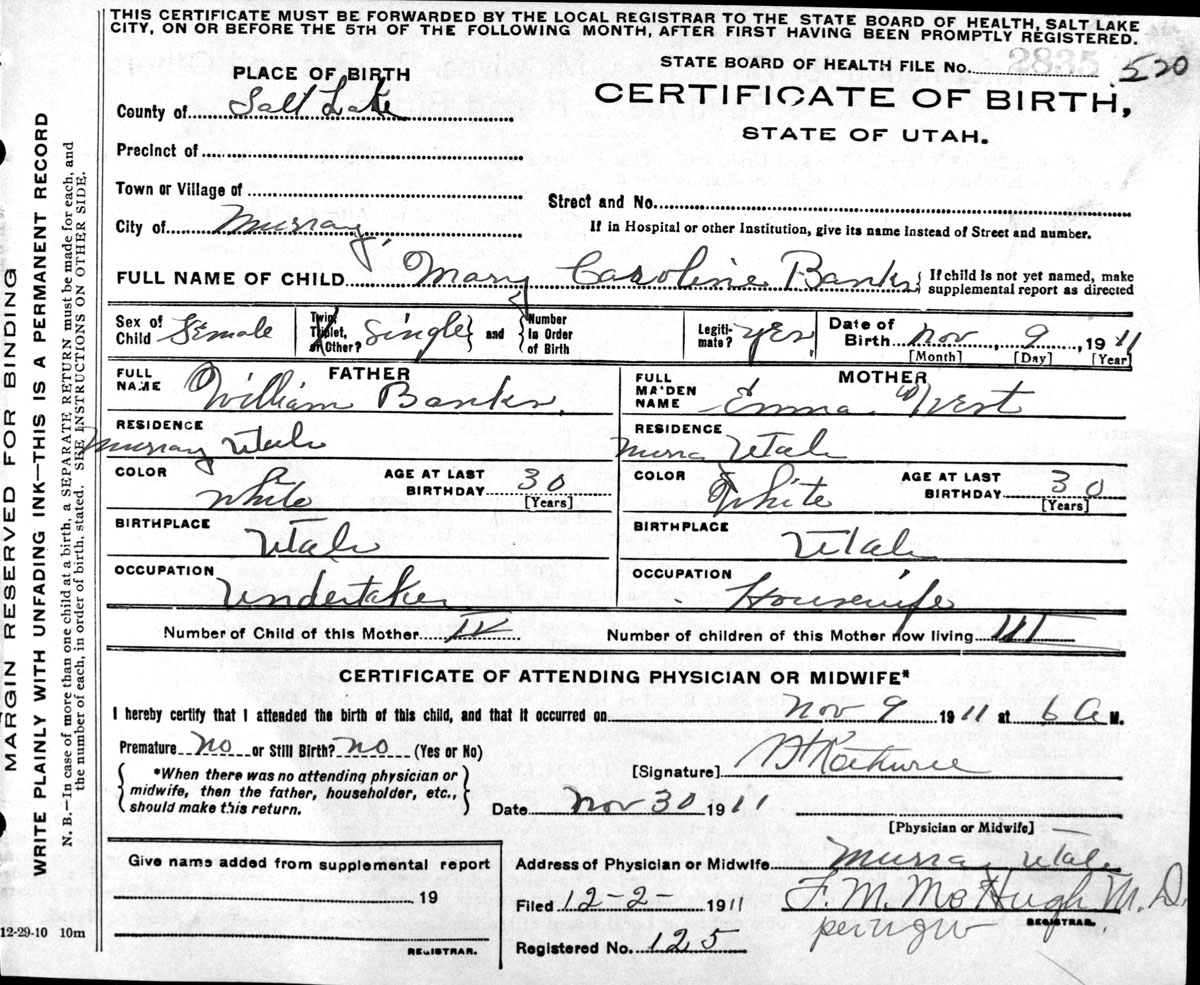 THIS CERTIFICATE MUST BE FORWARDED BY THE LOCAL REGISTRAR TO THE STATE BOARD OF HEALTH, SALT LAKE
CITY, ON OR BEFORE THE 5TH OF THE FOLLOWING MONTH, AFTER FIRST HAVING BEEN PROMPTLY REGISTERED.
STATE BOARD OF HEALTH FILE No. 2835 520
CERTIFICATE OF BIRTH,
STATE OF UTAH.
PLACE OF BIRTH
County of Salt Lake
Precinct of
Town or Village of
City of Murray,
Street and No.
If in Hospital or other Institution, give its name instead of Street and number.
FULL NAME OF CHILD Mary Caroline Banks
If child is not yet named, make
supplemental report as directed
Sex of Child Female
Twin, Triplet, or Other? Single and Number in Order of Birth
Legitimate? Yes
Date of Birth Nov 9 1911
[Month] [Day] [Year]
FATHER
FULL NAME William Banks
RESIDENCE
Murray Utah
COLOR White AGE AT LAST BIRTHDAY 30
[Years]
BIRTHPLACE
Utah
OCCUPATION
Undertaker
MOTHER
FULL MAIDEN NAME Emma West
RESIDENCE
Murray Utah
COLOR White AGE AT LAST BIRTHDAY 30
[Years]
BIRTHPLACE
Utah
OCCUPATION
Housewife
Number of Child of this Mother IV Number of children of this Mother now living III
CERTIFICATE OF ATTENDING PHYSICIAN OR MIDWIFE*
I hereby certify that I attended the birth of this child, and that it occurred on Nov 9 1911 at 6 A M.
Premature no or Still Birth? no (Yes or No)
*When there was no attending physician or
midwife, then the father, householder, etc.,
should make this return.
[Signature]
Date Nov 30 1911
[Physician or Midwife]
Give name added from supplemental report
19
REGISTRAR.
Address of Physician or Midwife Murray Utah
Filed 12-2- 1911 F. M. McHugh M.D.
REGISTRAR.
Registered No. 125
12-29-10 10m
MARGIN RESERVED FOR BINDING
WRITE PLAINLY WITH UNFADING INK—THIS IS A PERMANENT RECORD
N. B.—In case of more than one child at a birth, a SEPARATE RETURN must be made for each, and
the number of each, in order of birth, stated. SEE INSTRUCTIONS ON OTHER SIDE.